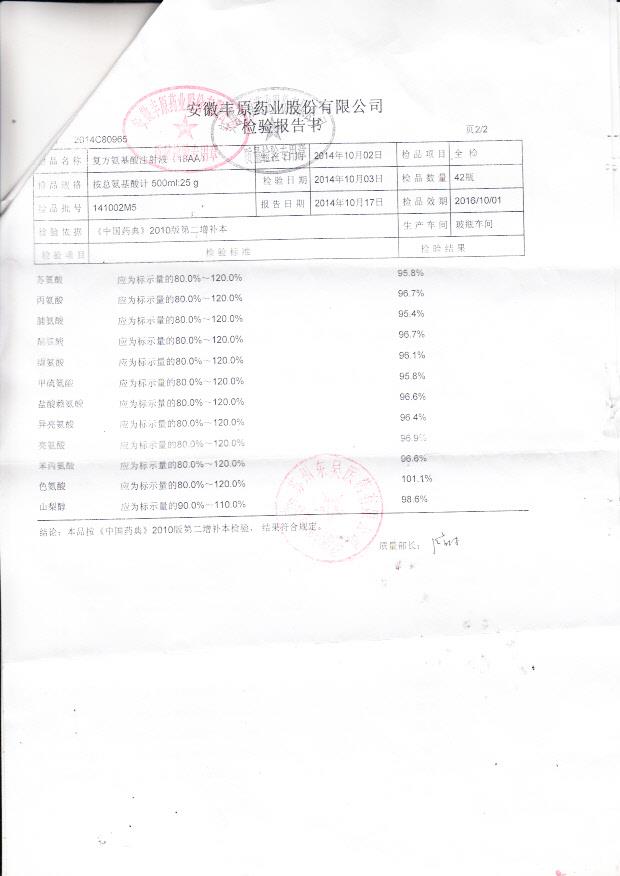 安徽丰原药业股份有限公司
检验报告书
2014C80965 页2/2
品名称 复方氨基酸注射液（18AA） 日期 2014年10月02日 检品项目 全检
检品规格 按总氨基酸计 500ml:25 g 检验日期 2014年10月03日 检品数量 42瓶
检品批号 141002M5 报告日期 2014年10月17日 检品效期 2016/10/01
检验依据 《中国药典》2010版第二增补本 生产车间 玻瓶车间
检验项目 检验标准 检验结果
苏氨酸 应为标示量的80.0%～120.0% 95.8%
丙氨酸 应为标示量的80.0%～120.0% 96.7%
脯氨酸 应为标示量的80.0%～120.0% 95.4%
应为标示量的80.0%～120.0% 96.7%
缬氨酸 应为标示量的80.0%～120.0% 96.1%
甲硫氨酸 应为标示量的80.0%～120.0% 95.8%
盐酸赖氨酸 应为标示量的80.0%～120.0% 96.6%
异亮氨酸 应为标示量的80.0%～120.0% 96.4%
亮氨酸 应为标示量的80.0%～120.0% 96.9%
苯丙氨酸 应为标示量的80.0%～120.0% 96.6%
色氨酸 应为标示量的80.0%～120.0% 101.1%
山梨醇 应为标示量的90.0%～110.0% 98.6%
结论：本品按《中国药典》2010版第二增补本检验，结果符合规定。
质量部长：